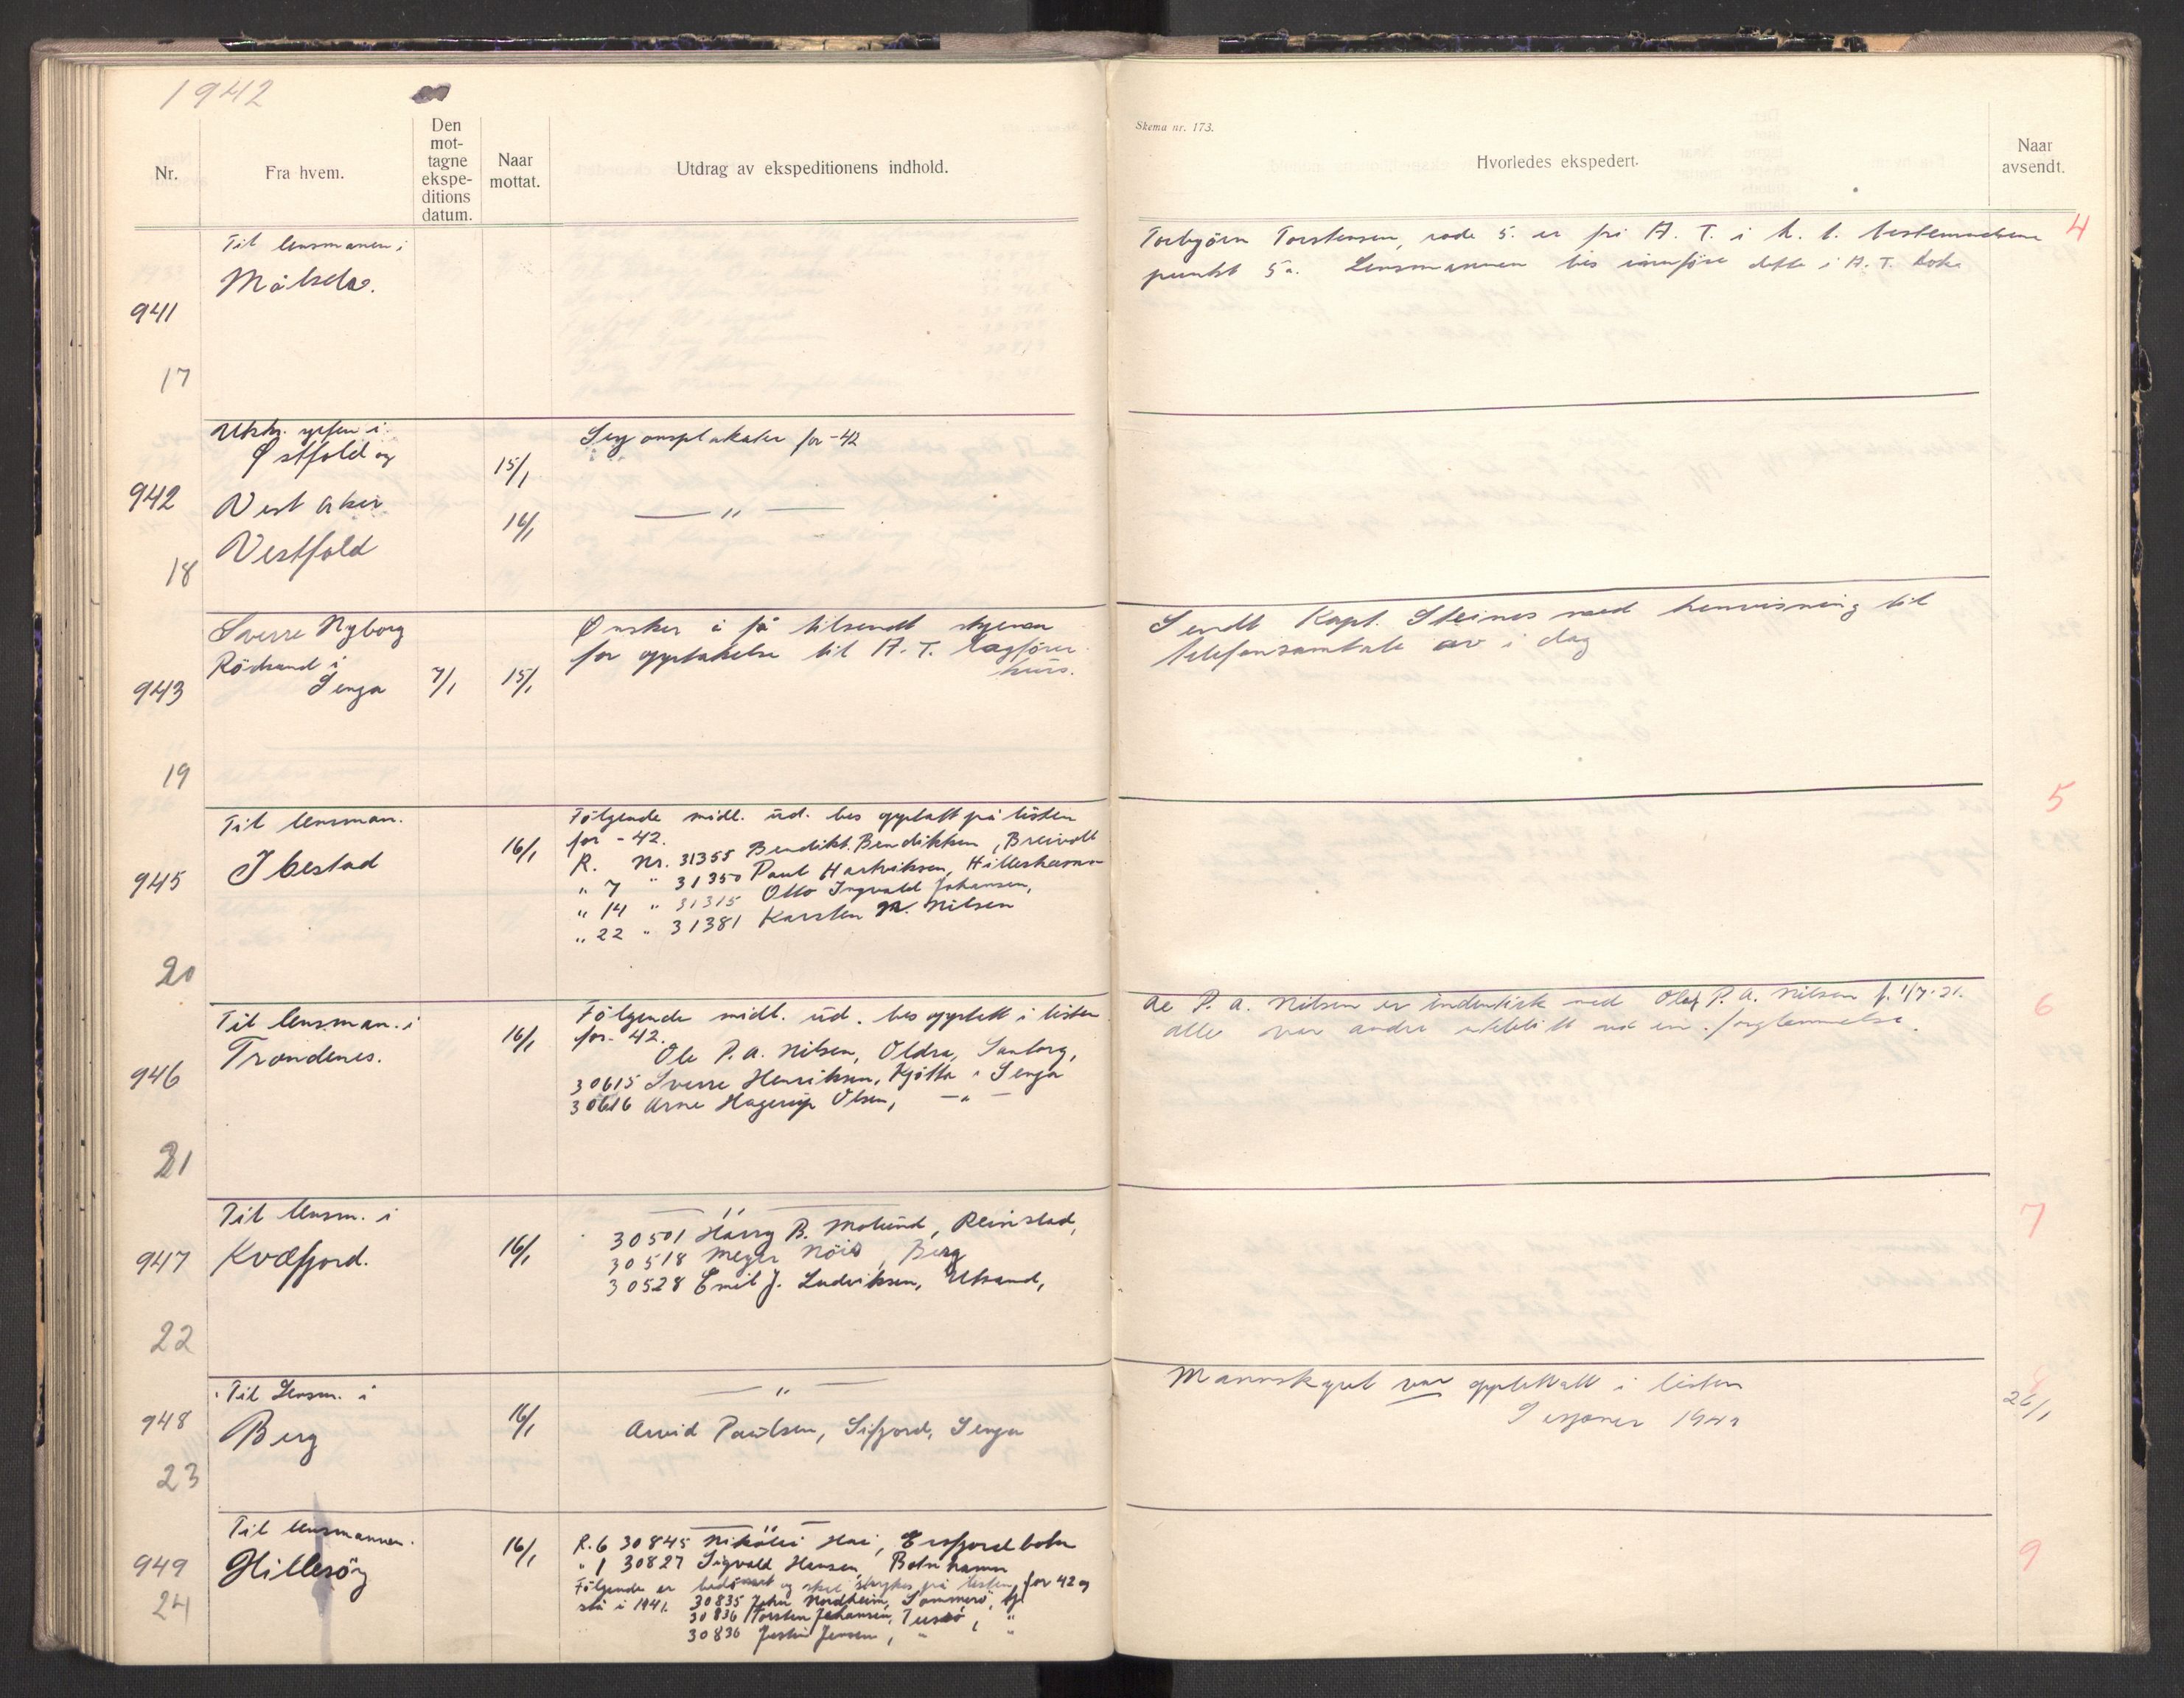 1942
Nr.
Fra hvem.
Den mot-
tagne
ekspe-
ditions
datum.
Naar
mottat.
Utdrag av ekspeditionens indhold.
Skema nr. 173.
Hvorledes ekspedert.
Naar
avsendt.
941
17
Til lensmannen i
Målselv.
Torbjörn Torstensen, rode 5. er fri A. T. i h. t. bestemmelsene
punkt 5a. Lensmannen bes innføre dette i A. T. boka
4
942
18
Østfold og
Vest Aker
Vestfold
15/1
16/1
Sesjonsplakater for -42
— " —
943
19
Sverre Nyborg
Rödsand i
Senja
7/1
15/1
Ønsker å få tilsendt skjema
for opptakelse til A. T. lagförer
kurs.
Sendt Kapt. Steines med henvisning til
telefonsamtale av i dag
945
20
Til lensman.
Ibestad
16/1
Følgende midl. ud. bes opptatt på listen
for -42.
R. Nr. 31355 Benedikt. Bendiksen, Breivoll
" 7 " 31350 Paul Hartviksen, Hilleshamn
" 14 " 31315 Otto Ingvald Johansen,
" 22 " 31381 Karsten M. Nilsen
5
946
21
Til lensman. i
Trondenes.
16/1
Følgende midl. ud. bes opptatt i listen
for 42.
Ole P. A. Nilsen, Oldra, Sandtorg,
30615 Sverre Henriksen, Kjøtta i Senja
30616 Arne Hagerup Olsen, — " —
Ole P. A. Nilsen er indentisk med Olaf P. A. Nilsen f. 1/7-21.
alle var andre uteblitt ved en forglemmelse.
6
947
22
Til lensm. i
Kvæfjord.
16/1
— " —
30501 Harry B. Molund, Reinstad,
30518 Meyer Nöis, Berg
30528 Emil J. Ludviksen, Utsand,
7
948
23
Til Lensm. i
Berg
16/1
— " —
Arvid Paulsen, Sifjord, Senja
Mannskapet var opptatt i listen
Sesjoner 1942
26/1
949
24
Til lensmannen.
Hillesöy
16/1
— " —
R. 6 30845 Nikolai Hai, Ersfjordbotn
" 1 30827 Sigvald Hansen, Botnhamn
Følgende er bedömt og skal strykes på listen for 42 og
stå i 1941. 30835 John Nordheim, Sommerö,
30836 Torsten Johansen, Tussö, "
30836 Jostein Jensen, " "
9